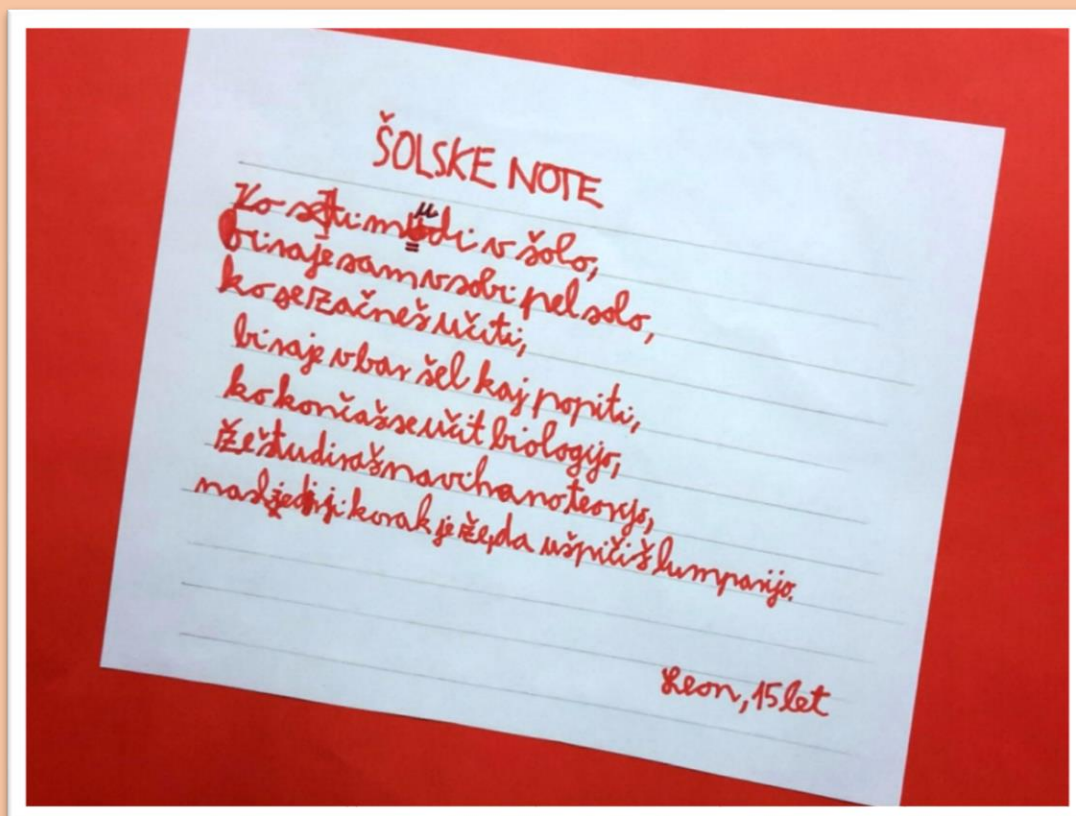 ŠOLSKE NOTE
Ko se ti mudi v šolo,
bi raje sam v sobi pel solo,
ko se začneš učiti,
bi raje v bar šel kaj popiti,
ko končaš se učit biologijo,
že študiraš na vihano teorijo,
naslednji korak je že, da ušpičiš lumparijo.
Leon, 15 let